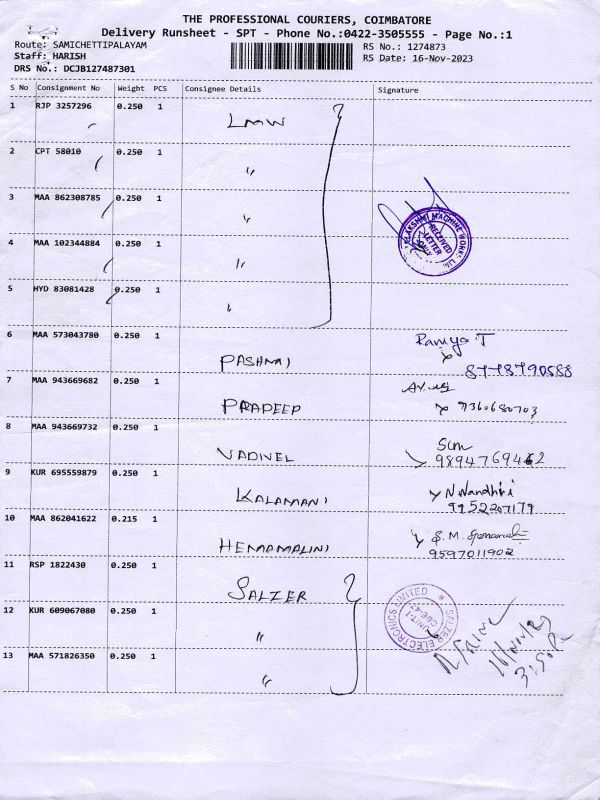 THE PROFESSIONAL COURIERS, COIMBATORE
Delivery Runsheet - SPT - Phone No.:0422-3505555 - Page No.:1
Route: SAMICHETTIPALAYAM RS No.: 1274873
Staff: HARISH RS Date: 16-Nov-2023
DRS No.: DCJB127487301
S No Consignment No Weight PCS Consignee Details Signature
1 RJP 3257296 0.250 1 LMW
2 CPT 58010 0.250 1 "
3 MAA 862308785 0.250 1 "
LAKSHMI MACHINE WORKS
RECEIVED
LETTER
ONLY
4 MAA 102344884 0.250 1 "
5 HYD 83081428 0.250 1 "
6 MAA 573043780 0.250 1 Ramya T
8778790588
7 MAA 943669682 0.250 1 PRADEEP
9360680703
8 MAA 943669732 0.250 1 VADIVEL
9894769462
9 KUR 695559879 0.250 1 KALAMANI N.Nandhini
9952207179
10 MAA 862041622 0.215 1 HEMAMALINI S.M.
9597011902
11 RSP 1822430 0.250 1 SALZER
SALZER ELECTRONICS LIMITED
UNIT-1
12 KUR 609067080 0.250 1 "
13 MAA 571826350 0.250 1 "